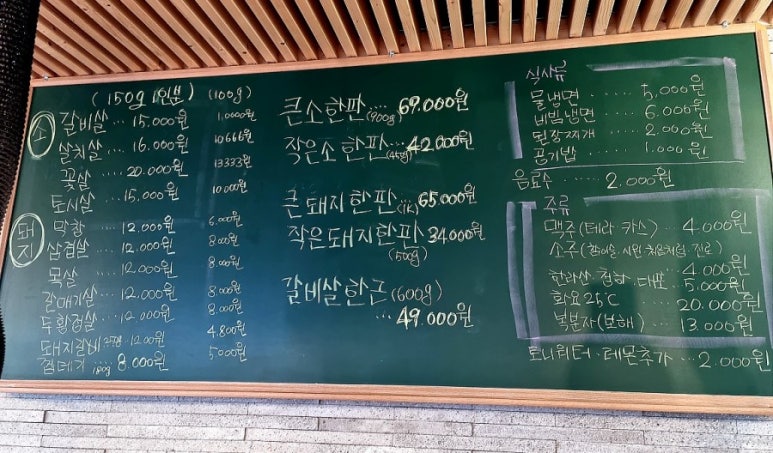 (150g 1인분) (100g)
소
갈비살 ... 15.000원
살치살 ... 16.000원 10666원
꽃살 ... 20.000원 13333원
토시살 ... 15.000원 10.000원
돼지
막창 ... 12.000원
삼겹살 ... 12.000원 8.000원
목살 ... 12.000원 8.000원
갈매기살 ... 12.000원 8.000원
12.000원 8.000원
돼지갈비 12.000 4.800원
껍데기 180g 8.000원 5.000원
큰소한판 .... (900g) 69.000원
작은소한판 ... 42.000원
큰돼지한판 ... (1k) 65.000원
작은돼지한판 34.000원
(500g)
갈비살한근 (600g)
... 49.000원
식사류
물냉면 ..... 5,000원
비빔냉면 ... 6.000원
된장찌개 ... 2.000원
공기밥 ..... 1.000원
음료수 ... 2.000원
주류
맥주 (테라 카스) ... 4.000원
소주 (참이슬. 시원. 처음처럼. 진로)
4.000원
한라산. 청하. 대포. 5.000원
화요 25℃ 20.000원
복분자(보해) ... 13.000원
토니워터 · 레몬추가 ... 2.000원